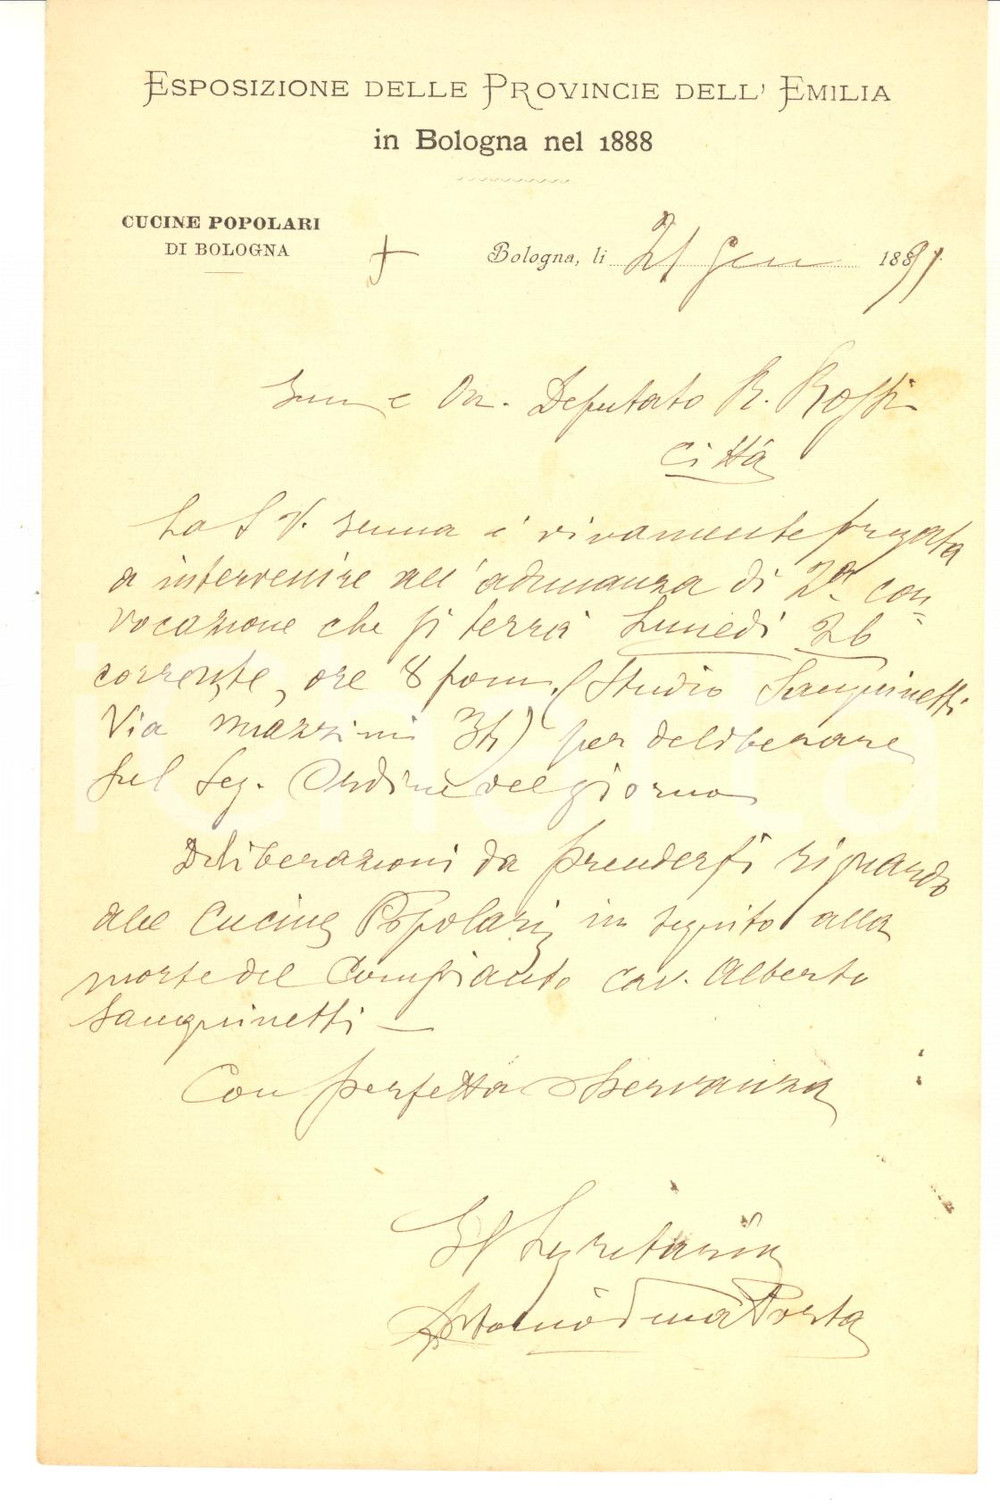 ESPOSIZIONE DELLE PROVINCIE DELL' EMILIA
in Bologna nel 1888
CUCINE POPOLARI
DI BOLOGNA
Bologna, li 21 Gen 1891
e On. Deputato R. Rossi
Città
La S V. è vivamente pregata
a intervenire all'adunanza di 2a con=
vocazione che si terrà Lunedì 26
corrente, ore 8 pom. (Studio Sanguinetti
Via Mazzini 34) per deliberare
sul seg. Ordine del giorno
Deliberazioni da prendersi riguardo
alle Cucine Popolari in seguito alla
morte del Compianto cav. Alberto
Sanguinetti —
Con perfetta osservanza
Il Segretario